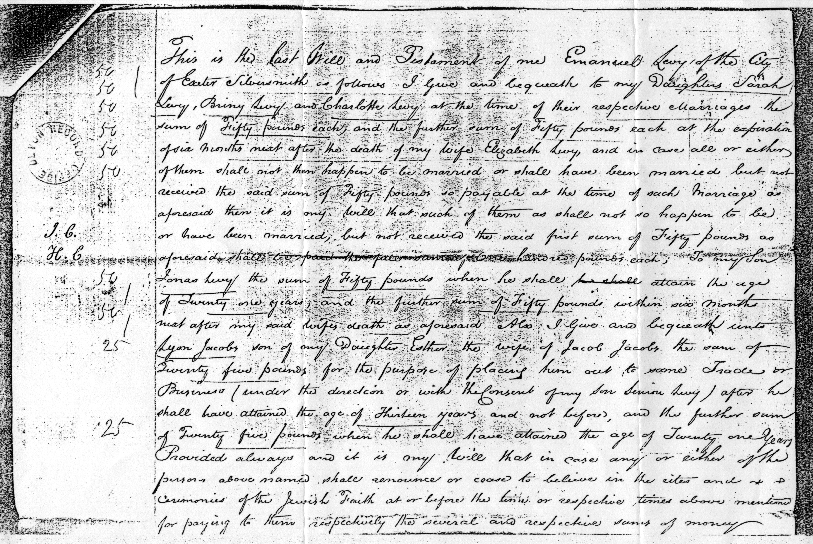 This is the last Will and Testament of me Emanuel Levy of the City
of Exeter Silversmith as follows I Give and bequeath to my Daughters Sarah
Levy, Briny Levy and Charlotte Levy at the time of their respective Marriages the
sum of Fifty pounds each, and the further sum of Fifty pounds each at the expiration
of six Months next after the death of my wife Elizabeth Levy, and in case all or either
of them shall not then happen to be married or shall have been married but not
received the said sum of Fifty pounds so payable at the time of such Marriage as
aforesaid then it is my Will that such of them as shall not so happen to be
or have been married, but not received the said first sum of Fifty pounds as
aforesaid shall be paid the sum of pounds each, To my Son
Jonas Levy the sum of Fifty pounds when he shall attain the age
of Twenty one years, and the further sum of Fifty pounds within six Months
next after my said wifes death as aforesaid Also I Give and bequeath unto
Lyon Jacobs son of my Daughter Esther the wife of Jacob Jacobs the sum of
Twenty five pounds for the purpose of placing him out to some Trade or
Business (under the direction or with the Consent of my Son Simon Levy) after he
shall have attained the age of Thirteen years and not before, and the further sum
of Twenty five pounds when he shall have attained the age of Twenty one Years
Provided always and it is my Will that in case any or either of the
persons above named shall renounce or cease to believe in the rites and
ceremonies of the Jewish Faith at or before the time or respective times above mentioned
for paying to them respectively the several and respective sums of money
50
50
50
50
50
50
J. C.
H. C.
50
50
25
25